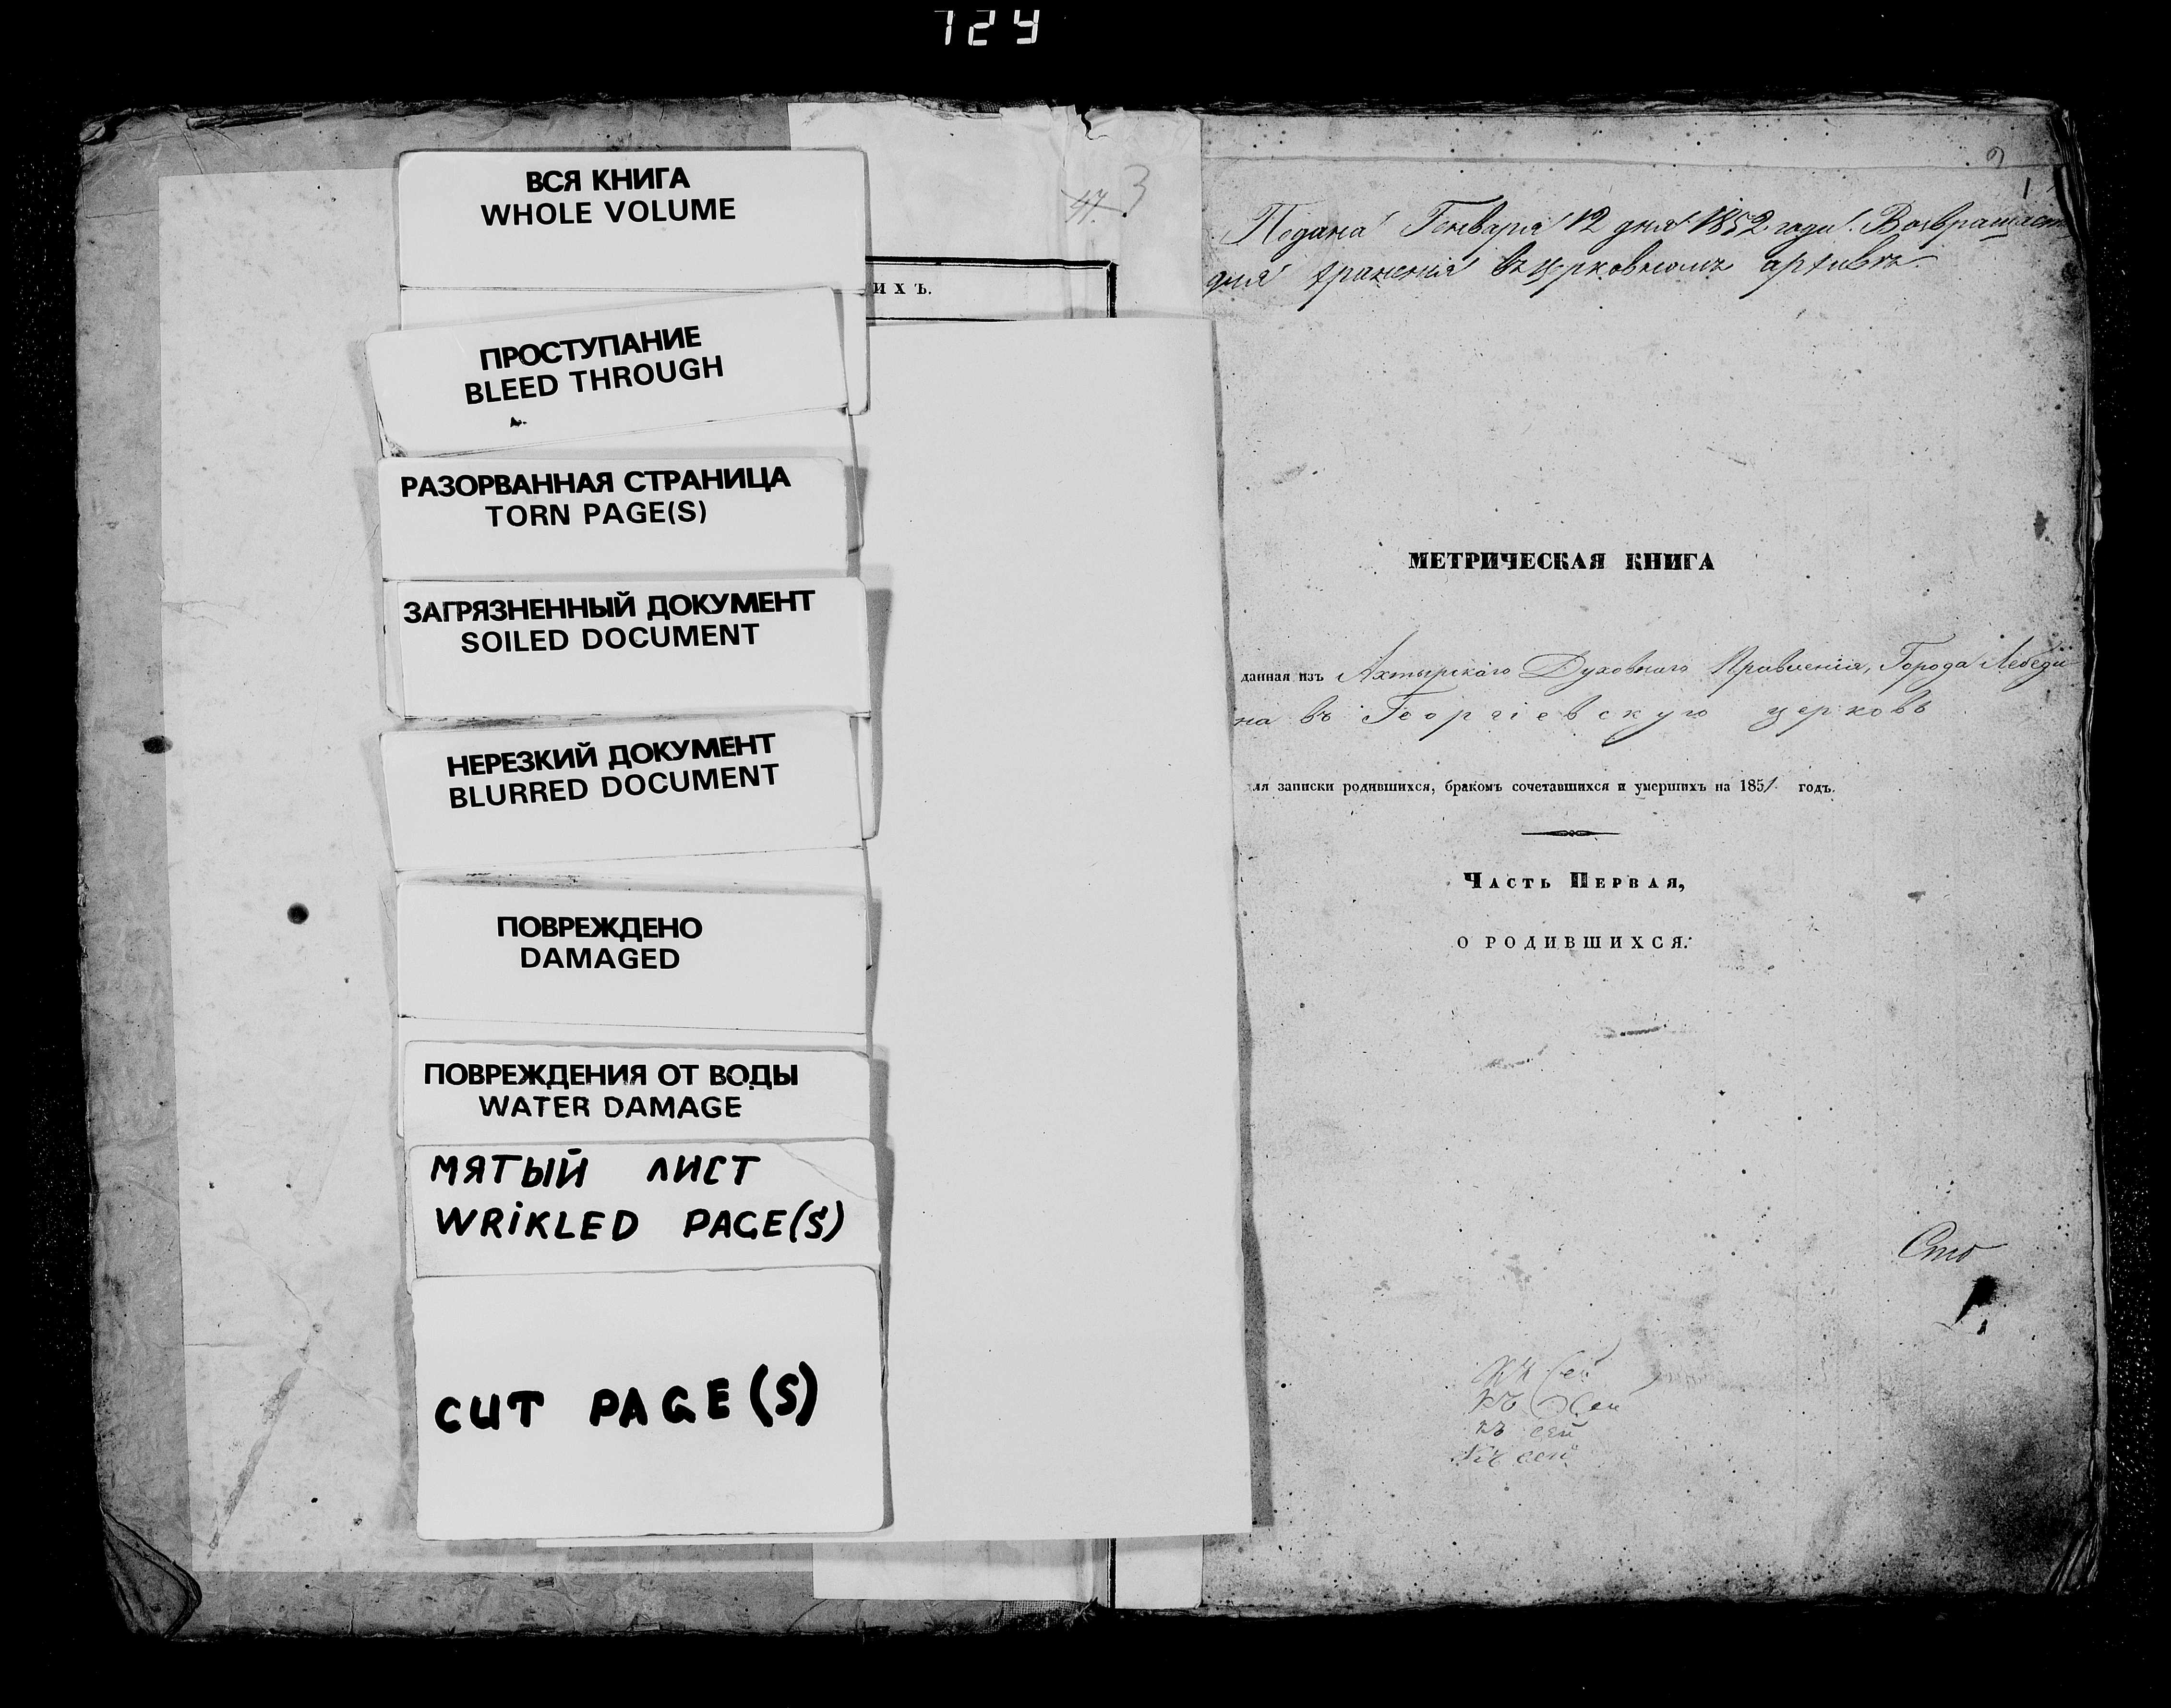 724
ВСЯ КНИГА
WHOLE VOLUME
ПРОСТУПАНИЕ
BLEED THROUGH
РАЗОРВАННАЯ СТРАНИЦА
TORN PAGE(S)
ЗАГРЯЗНЕННЫЙ ДОКУМЕНТ
SOILED DOCUMENT
НЕРЕЗКИЙ ДОКУМЕНТ
BLURRED DOCUMENT
ПОВРЕЖДЕНО
DAMAGED
ПОВРЕЖДЕНИЯ ОТ ВОДЫ
WATER DAMAGE
МЯТЫЙ ЛИСТ
WRiKLED PAGE(S)
CUT PAGE(S)
3
ИХЪ.
1
Подана Генваря 12 дня 1852 года. Возвращает
для хранения въ церковномъ архивѣ.
МЕТРИЧЕСКАЯ КНИГА
данная изъ Ахтырскаго Духовнаго Правленія, Города Лебеди
на въ Георгіевскую церковь
для записки родившихся, бракомъ сочетавшихся и умершихъ на 1851 годъ.
ЧАСТЬ ПЕРВАЯ,
О РОДИВШИХСЯ.
Сто